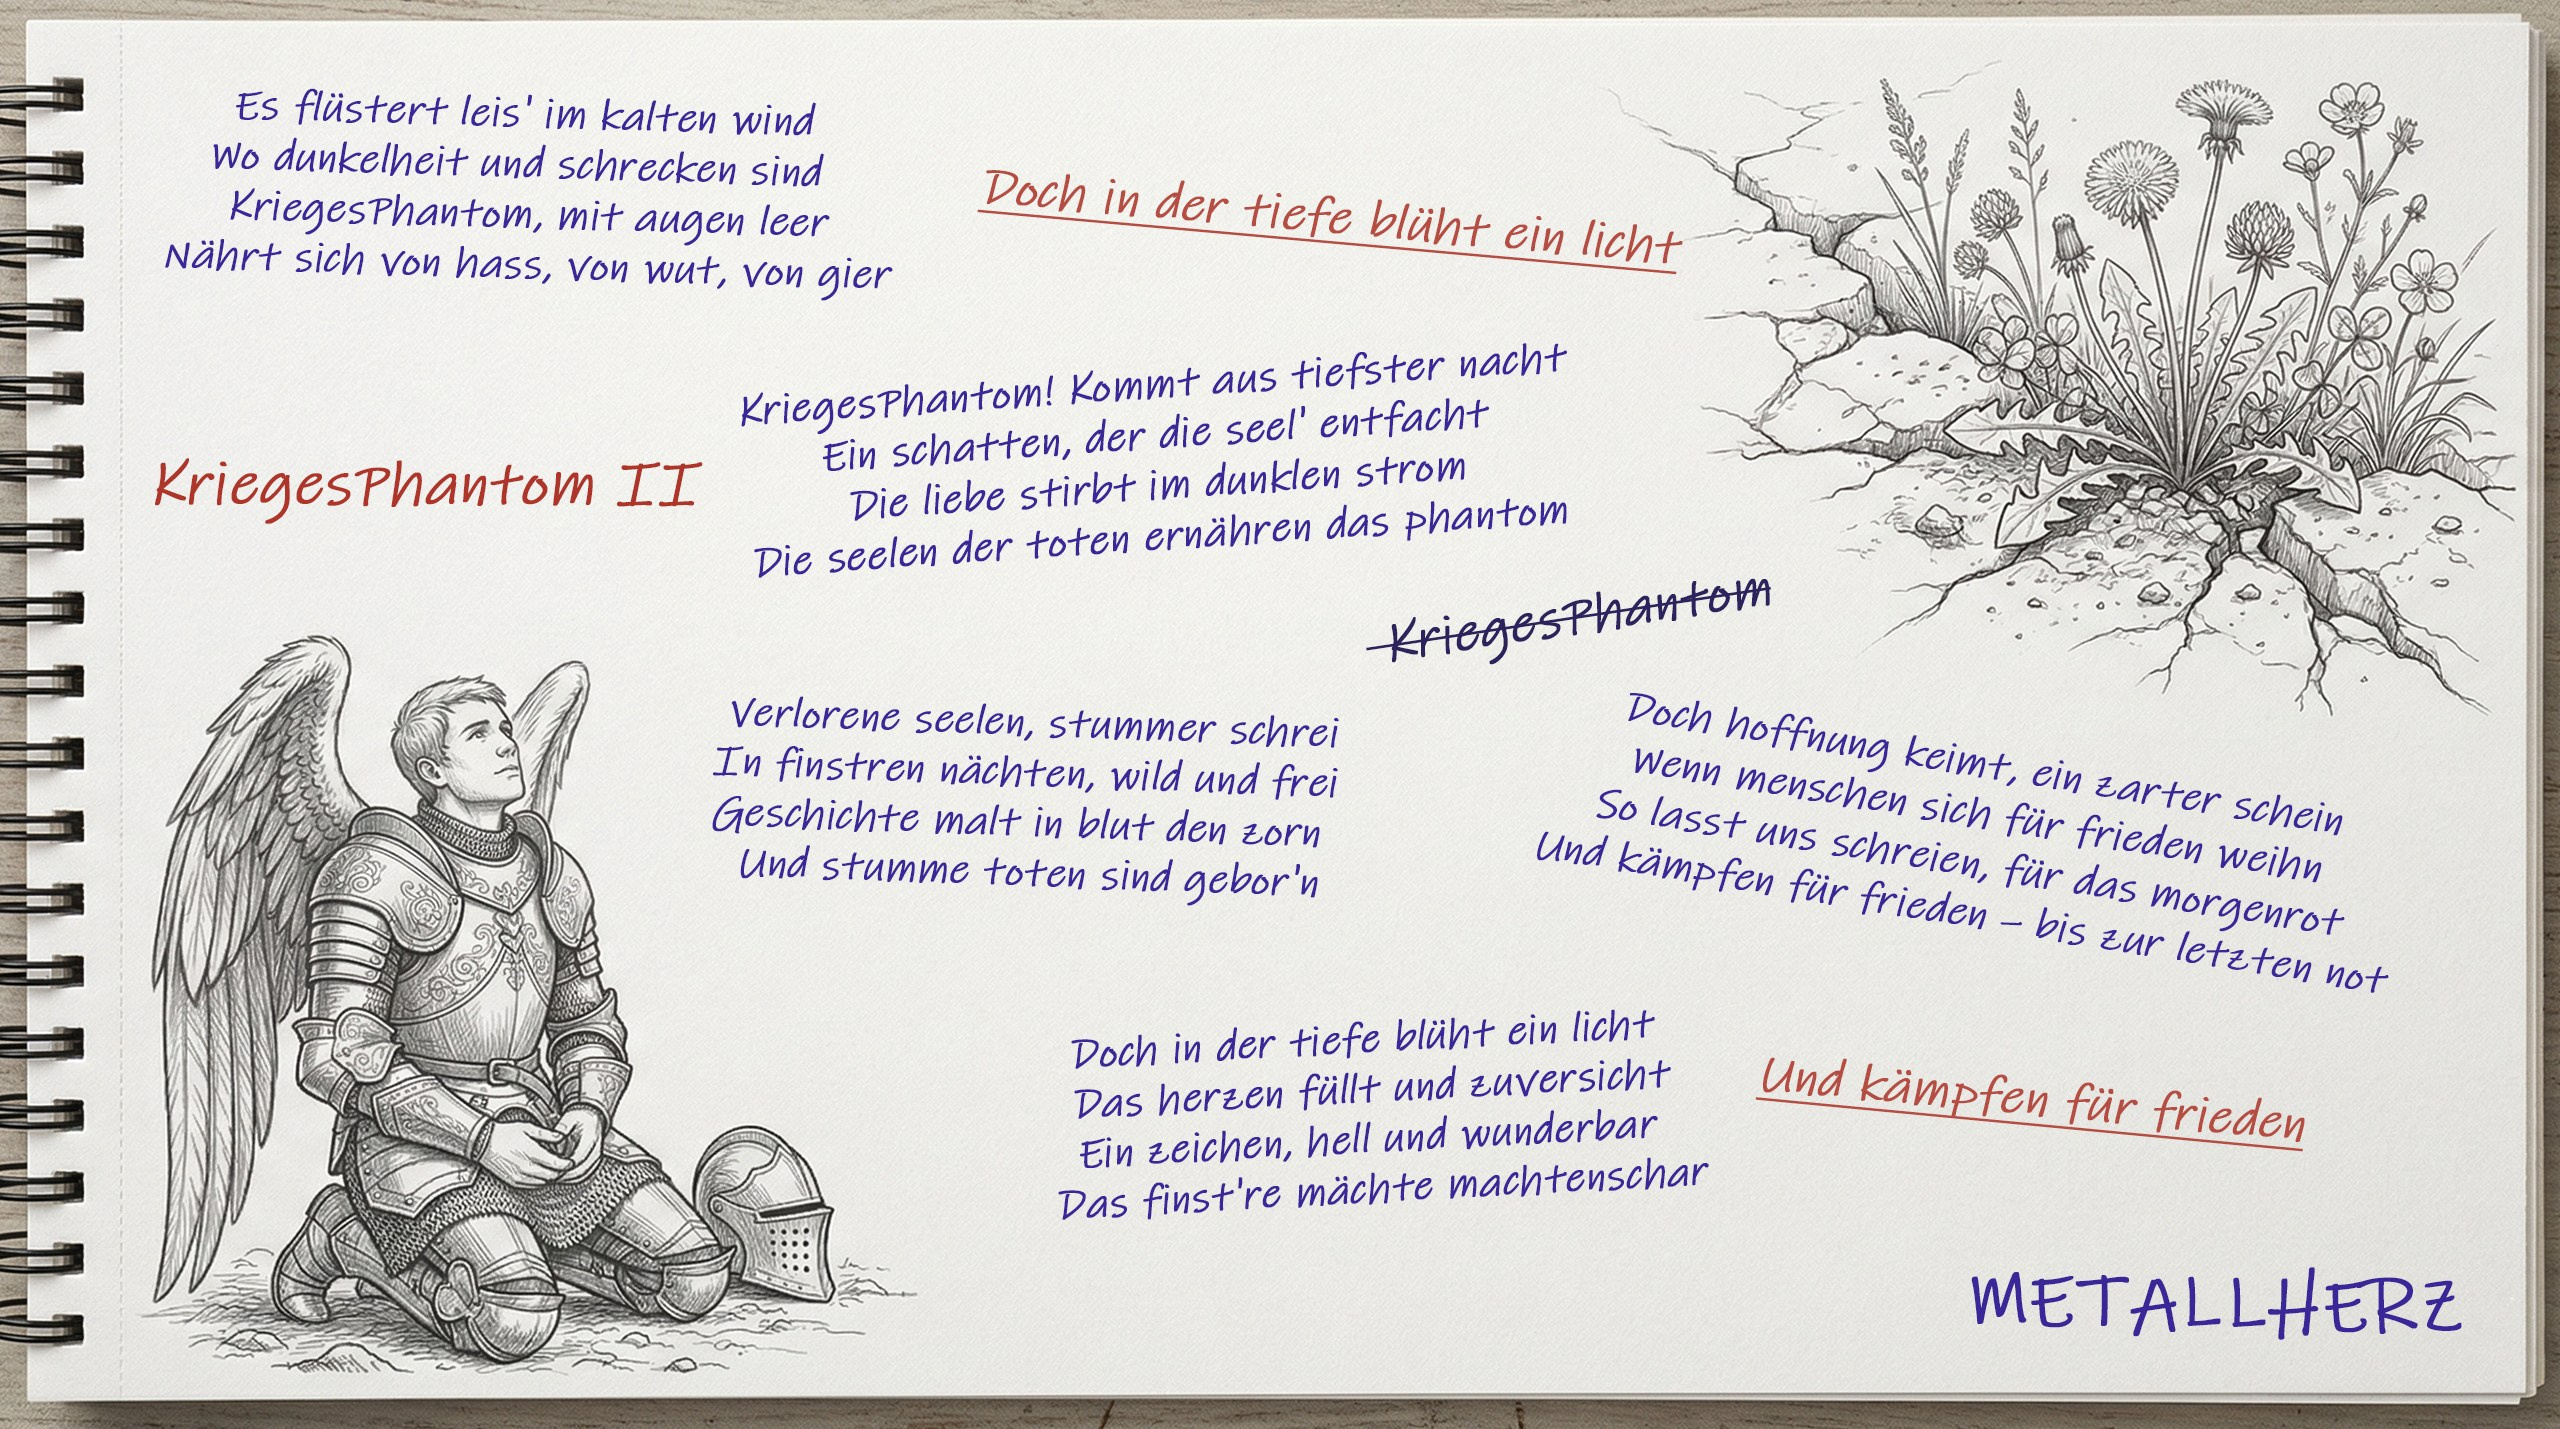 Es flüstert leis' im kalten wind
Wo dunkelheit und schrecken sind
KriegesPhantom, mit augen leer
Nährt sich von hass, von wut, von gier
Doch in der tiefe blüht ein licht
KriegesPhantom! Kommt aus tiefster nacht
Ein schatten, der die seel' entfacht
Die liebe stirbt im dunklen strom
Die seelen der toten ernähren das phantom
KriegesPhantom II
KriegesPhantom
Verlorene seelen, stummer schrei
In finstren nächten, wild und frei
Geschichte malt in blut den zorn
Und stumme toten sind gebor'n
Doch hoffnung keimt, ein zarter schein
Wenn menschen sich für frieden weihn
So lasst uns schreien, für das morgenrot
Und kämpfen für frieden – bis zur letzten not
Doch in der tiefe blüht ein licht
Das herzen füllt und zuversicht
Ein zeichen, hell und wunderbar
Das finst're mächte machtenschar
Und kämpfen für frieden
METALLHERZ